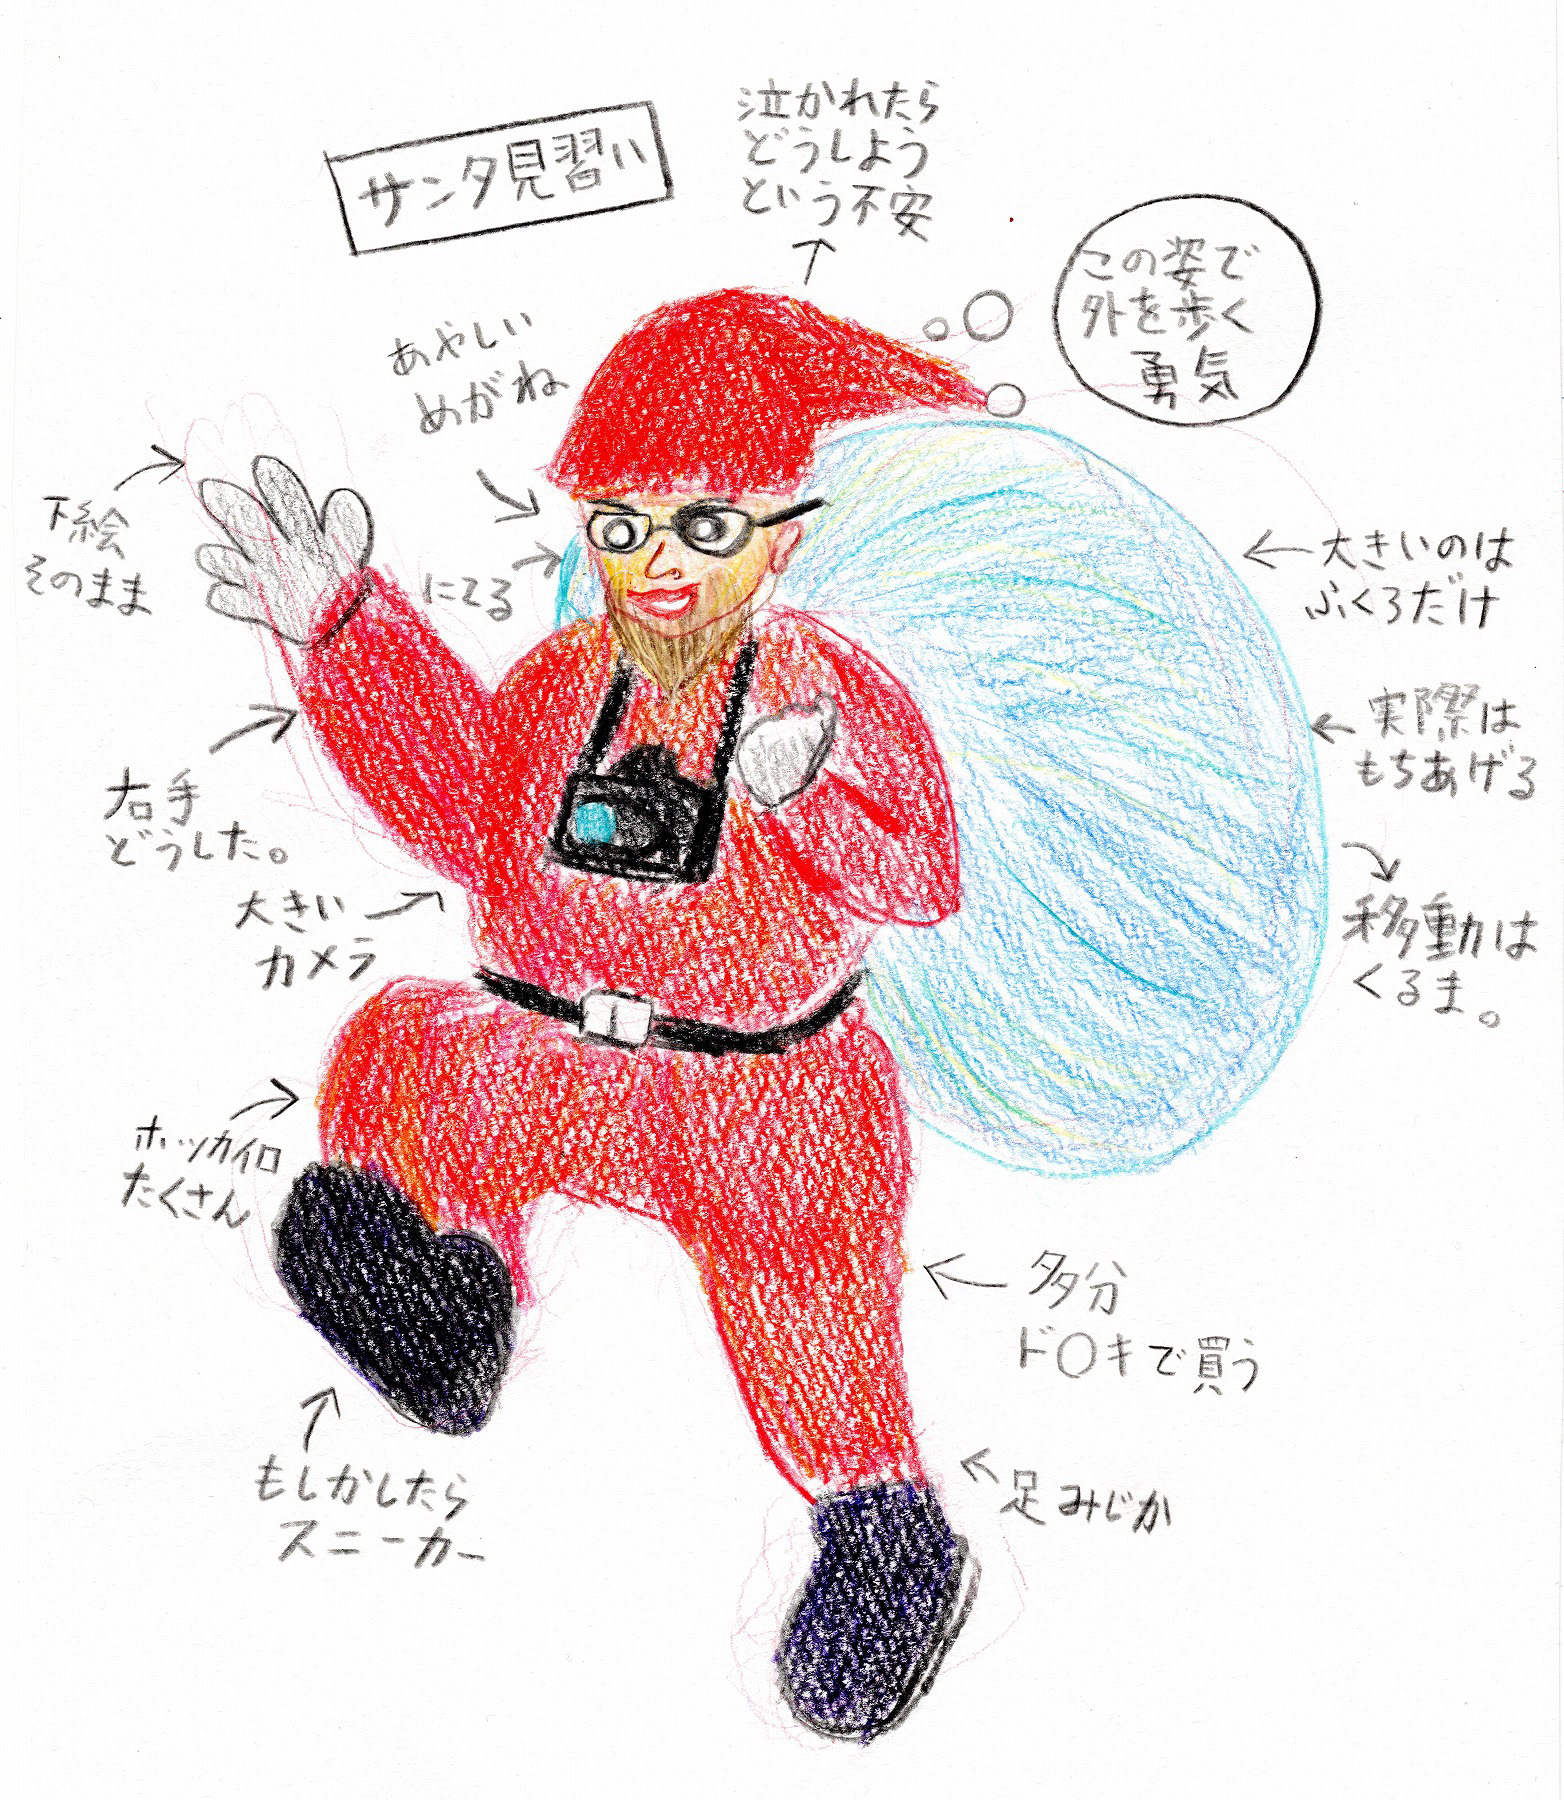 サンタ見習い
泣かれたら
どうしよう
という不安
この姿で
外を歩く
勇気
あやしい
めがね
下絵
そのまま
にてる
大きいのは
ふくろだけ
実際は
もちあげる
右手
どうした。
大きい
カメラ
移動は
くるま。
ホッカイロ
たくさん
多分
ド〇キで買う
もしかしたら
スニーカー
足みじか